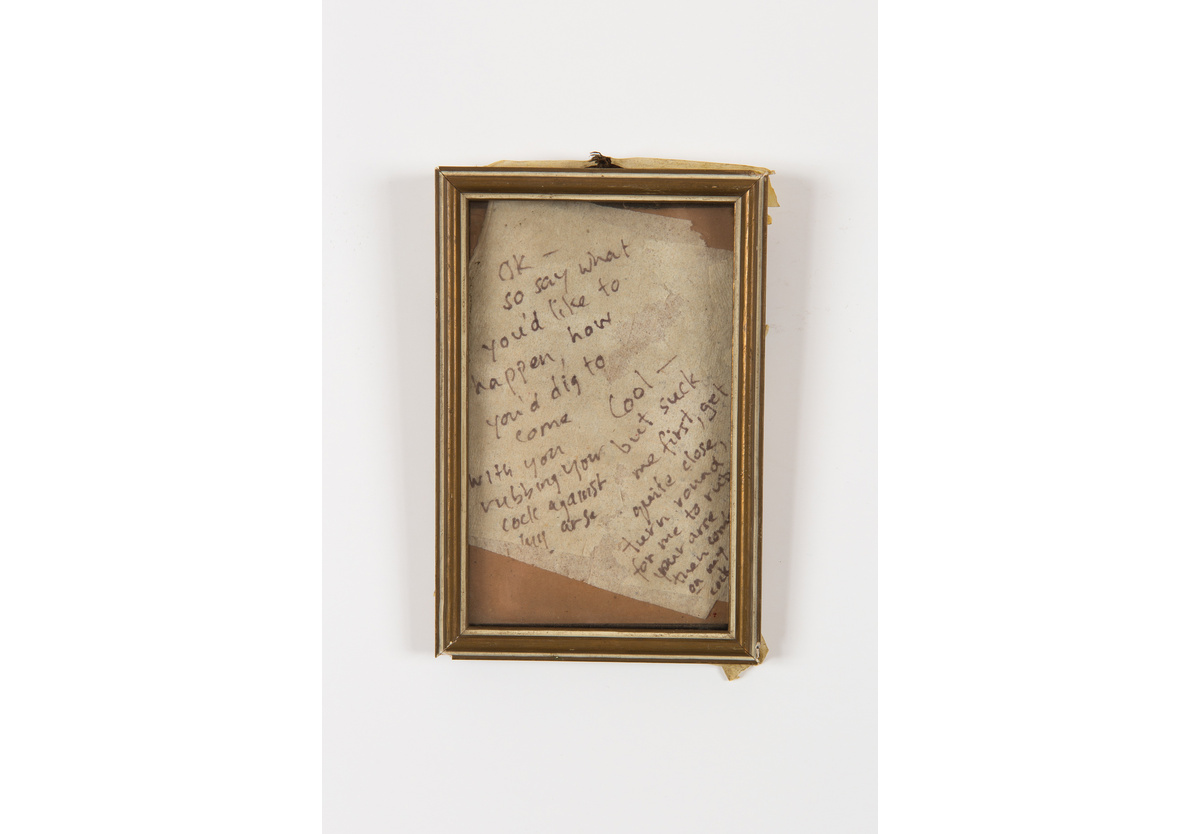 OK –
so say what
you'd like to
happen, how
you'd dig to
come
with you
rubbing your
cock against
my arse
Cool –
but suck
me first, get
quite close
turn round,
for me to rub
your arse
then come
on my
cock